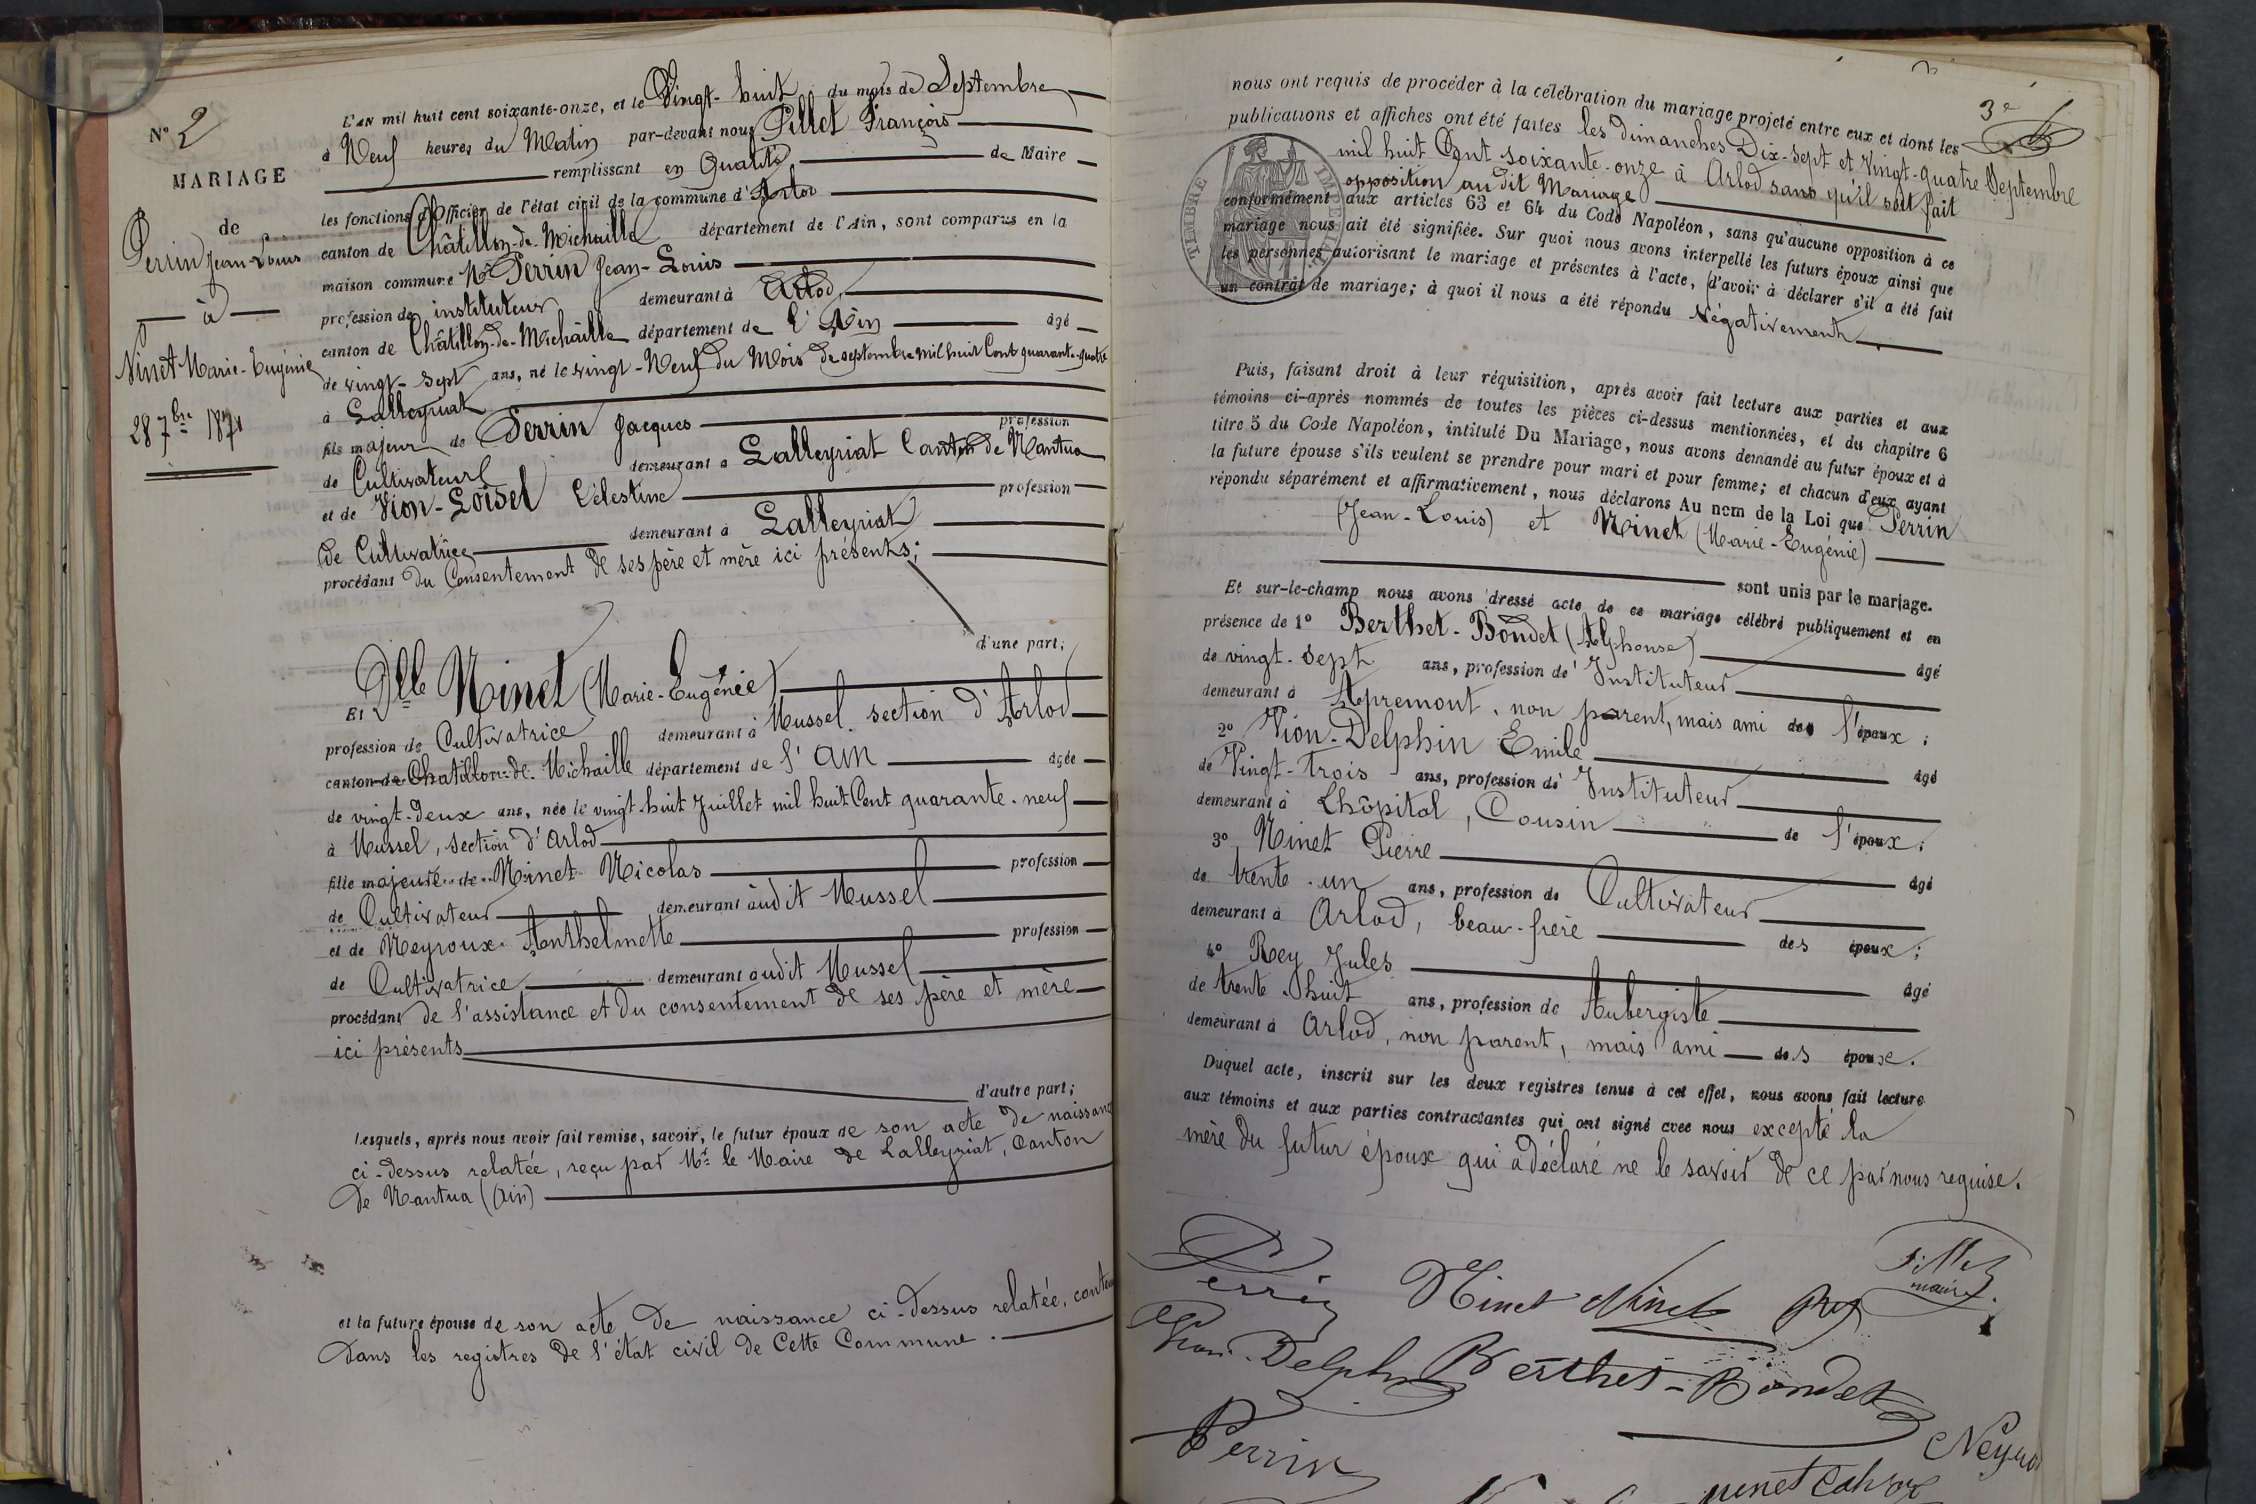 N° 2
MARIAGE
de
Perrin Jean-Louis
à
Ninet Marie-Eugénie
28 7bre 1871
L'an mil huit cent soixante-onze, et le Vingt-huit du mois de Septembre
à Neuf heures du Matin par-devant nous Pillet François
remplissant en Qualité de Maire
les fonctions d'Officier de l'état civil de la commune d'Arlod
canton de Châtillon-de-Michaille département de l'Ain, sont comparus en la
maison commune Mr Perrin Jean-Louis
profession de instituteur demeurant à Arlod,
canton de Châtillon-de-Michaille département de l'Ain âgé
de vingt-sept ans, né le vingt-Neuf du Mois de septembre mil huit Cent quarante-quatre
à Lalleyriat
fils majeur de Perrin Jacques profession
de Cultivateur demeurant à Lalleyriat Canton de Nantua
et de Vion-Loisel Célestine profession
de Cultivatrice demeurant à Lalleyriat
procédant du Consentement de ses père et mère ici présents;
d'une part;
Et Dlle Ninet (Marie-Eugénie)
profession de Cultivatrice demeurant à Mussel section d'Arlod
canton de Chatillon-de-Michaille département de l'Ain âgée
de vingt-deux ans, née le vingt-huit Juillet mil huit Cent quarante-neuf
à Mussel, section d'Arlod
fille majeure de Ninet Nicolas profession
de Cultivateur demeurant àudit Mussel
et de Neyroux Anthelmette profession
de Cultivatrice demeurant àudit Mussel
procédant de l'assistance et du consentement de ses père et mère
ici présents
d'autre part;
Lesquels, après nous avoir fait remise, savoir, le futur époux de son acte de naissance
ci-dessus relatée, reçu par Mr le Maire de Lalleyriat, Canton
de Nantua (Ain)
et la future épouse de son acte de naissance ci-dessus relatée,
dans les registres de l'état civil de Cette Commune.
3e
nous ont requis de procéder à la célébration du mariage projeté entre eux et dont les
publications et affiches ont été faites les dimanches Dix-sept et Vingt-quatre Septembre
mil huit Cent soixante-onze à Arlod sans qu'il soit fait
opposition au dit Mariage
TIMBRE IMPERIAL
conformément aux articles 63 et 64 du Code Napoléon, sans qu'aucune opposition à ce
mariage nous ait été signifiée. Sur quoi nous avons interpellé les futurs époux ainsi que
les personnes autorisant le mariage et présentes à l'acte, d'avoir à déclarer s'il a été fait
un contrat de mariage; à quoi il nous a été répondu Négativement
Puis, faisant droit à leur réquisition, après avoir fait lecture aux parties et aux
témoins ci-après nommés de toutes les pièces ci-dessus mentionnées, et du chapitre 6
titre 5 du Code Napoléon, intitulé Du Mariage, nous avons demandé au futur époux et à
la future épouse s'ils veulent se prendre pour mari et pour femme; et chacun d'eux ayant
répondu séparément et affirmativement, nous déclarons Au nom de la Loi que Perrin
(Jean-Louis) et Ninet (Marie-Eugénie)
sont unis par le mariage.
Et sur-le-champ nous avons dressé acte de ce mariage célébré publiquement et en
présence de 1° Berthet-Bondet (Alphonse) âgé
de vingt-sept ans, profession de Instituteur
demeurant à Apremont, non parent, mais ami de l'époux;
2° Vion-Delphin Emile âgé
de Vingt-trois ans, profession de Instituteur
demeurant à Lhôpital, Cousin de l'époux;
3° Ninet Pierre âgé
de trente-un ans, profession de Cultivateur
demeurant à Arlod, beau-frère des époux;
4° Rey Jules âgé
de trente-huit ans, profession de Aubergiste
demeurant à Arlod, non parent, mais ami des époux.
Duquel acte, inscrit sur les deux registres tenus à cet effet, nous avons fait lecture
aux témoins et aux parties contractantes qui ont signé avec nous excepté la
mère du futur époux qui a déclaré ne le savoir de ce par nous requise.
Perrin Ninet Ninet Rey Pillet
maire.
Vion-Delphin Berthet-Bondet
Perrin